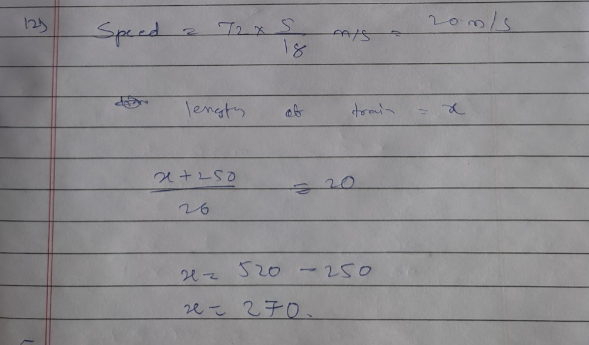 125) Speed = 72 × 5/18 m/s = 20 m/s
length of train = x
(x + 250)/26 = 20
x = 520 - 250
x = 270.